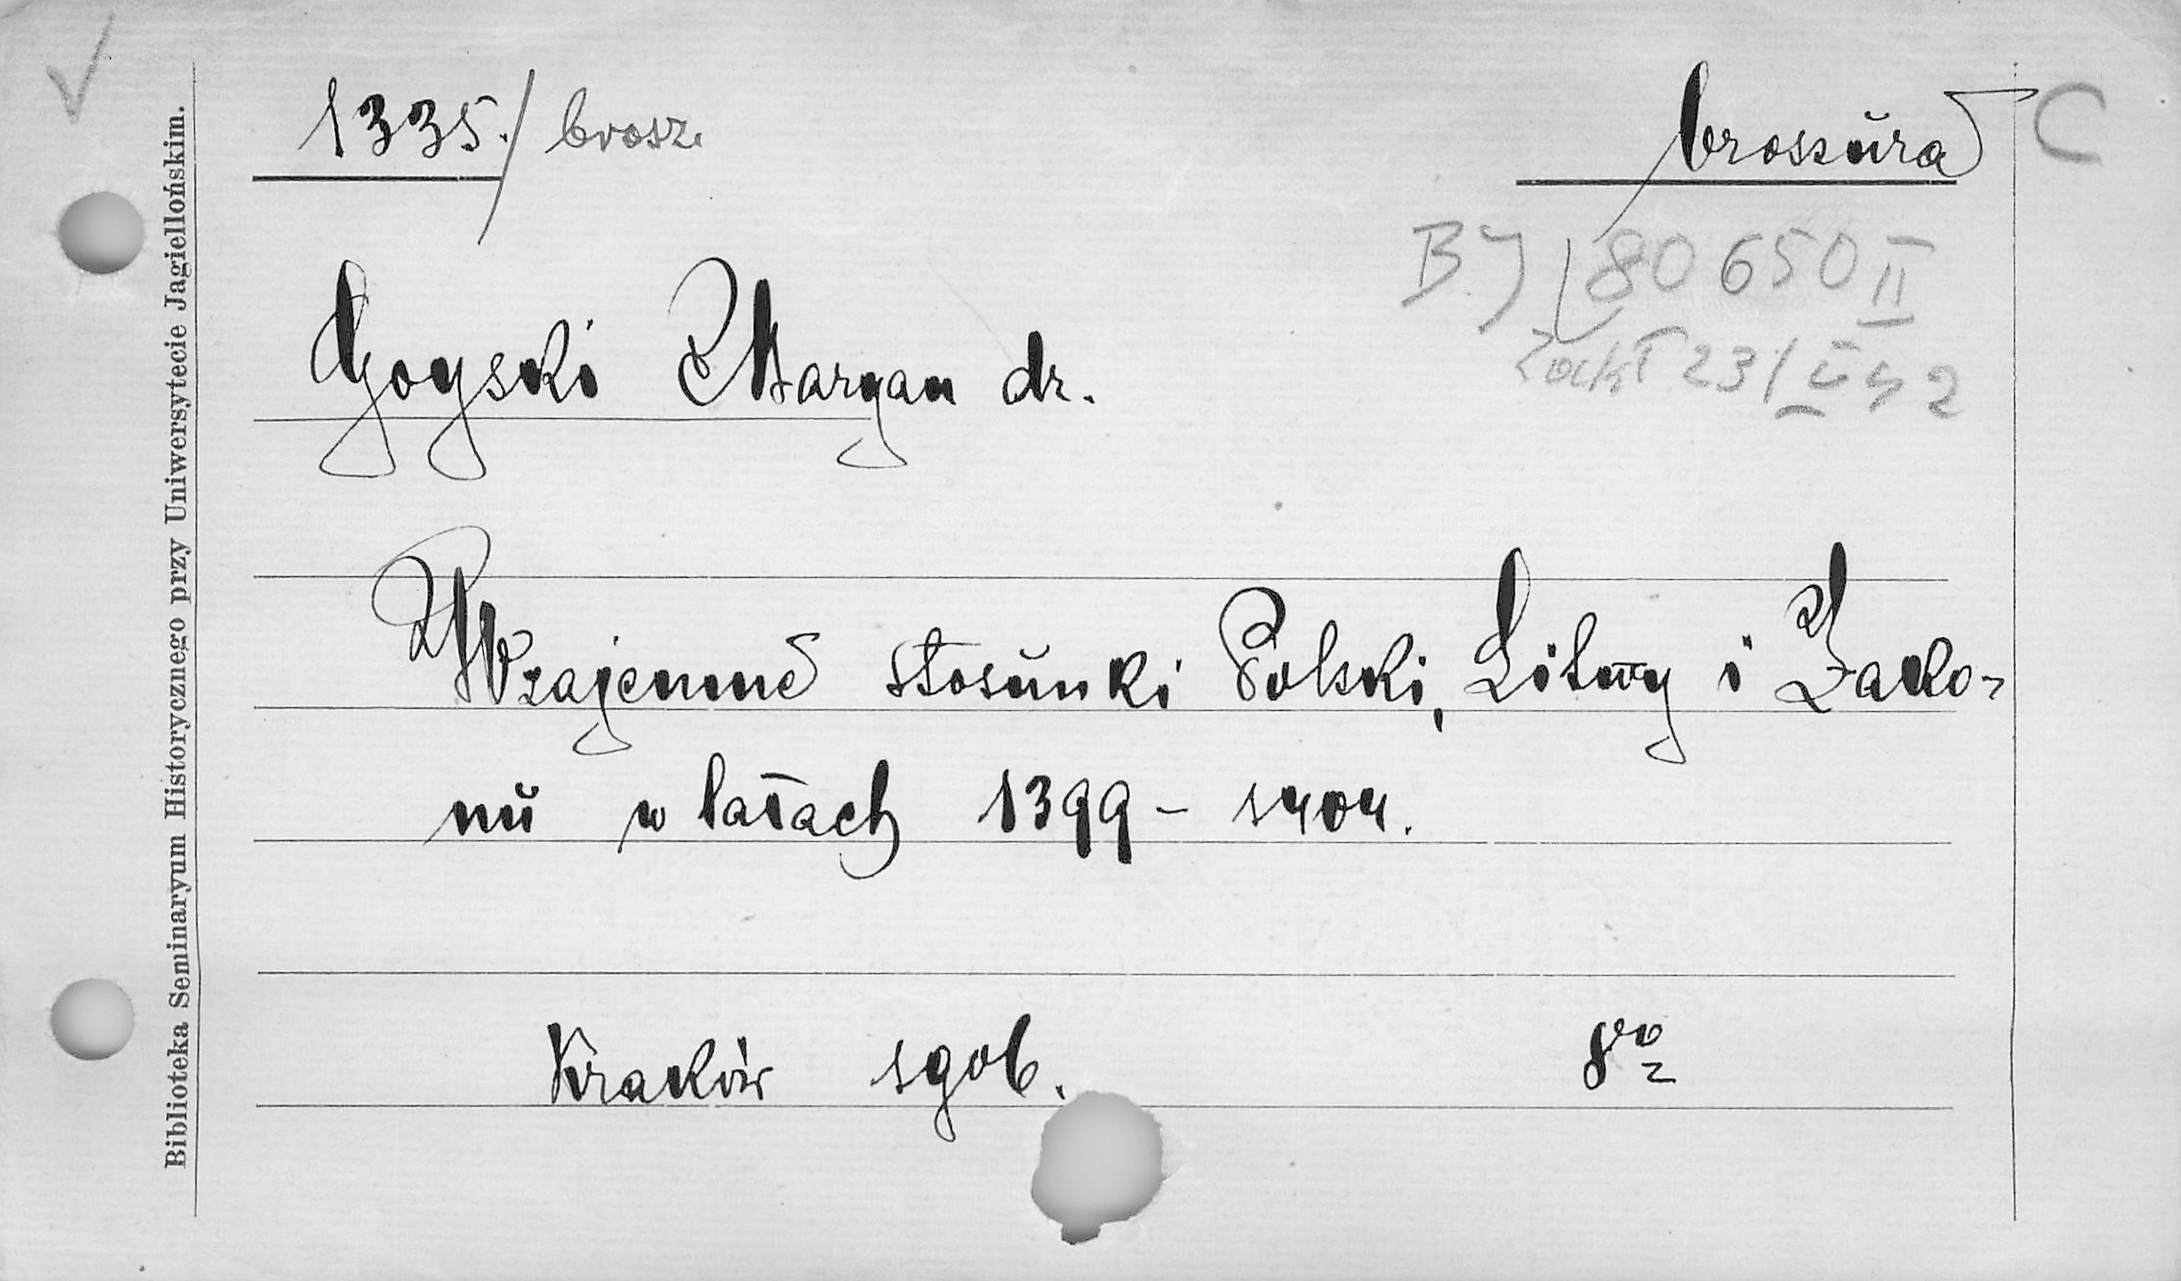 1335./ brosz.
broszura
C
BJ 80650 II
Goyski Maryan dr.
Wzajemne stosunki Polski, Litwy i Zako-
nu w latach 1399 - 1404.
Kraków 1906.
8vo
Biblioteka Seminaryum Historycznego przy Uniwersytecie Jagiellońskim.